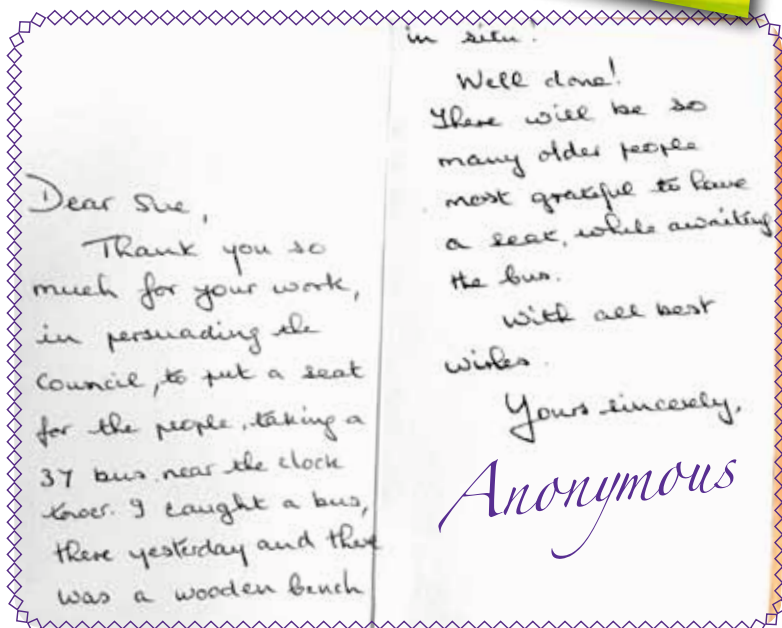 Dear Sue,
Thank you so
much for your work,
in persuading the
Council, to put a seat
for the people, taking a
37 bus near the clock
tower. I caught a bus,
there yesterday and there
was a wooden bench
in situ!
Well done!
There will be so
many older people
most grateful to have
a seat, while awaiting
the bus.
With all best
wishes.
Yours sincerely,
Anonymous